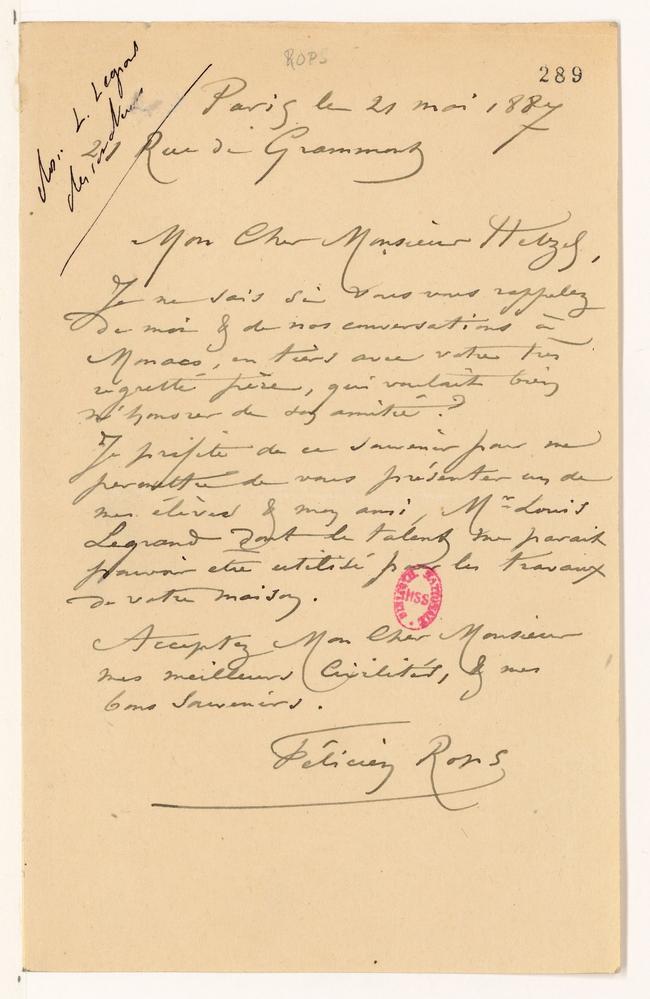 ROPS
289
L. Legrand
dessinateur
Paris le 21 mai 1887
21 Rue de Grammont
Mon Cher Monsieur Hetzel,
Je ne sais si vous vous rappelez
de moi & de nos conversations à
Monaco, en tiers avec votre très
regretté frère, qui voulait bien
m'honorer de son amitié ?
Je profite de ce souvenir pour me
permettre de vous présenter un de
mes élèves & mon ami, Mr Louis
Legrand dont le talent me parait
pouvoir etre utilisé par les travaux
de votre maison.
BIBLIOTHÈQUE NATIONALE MSS
Acceptez Mon Cher Monsieur
mes meilleurs Civilités, & mes
bons souvenirs.
Félicien Rops